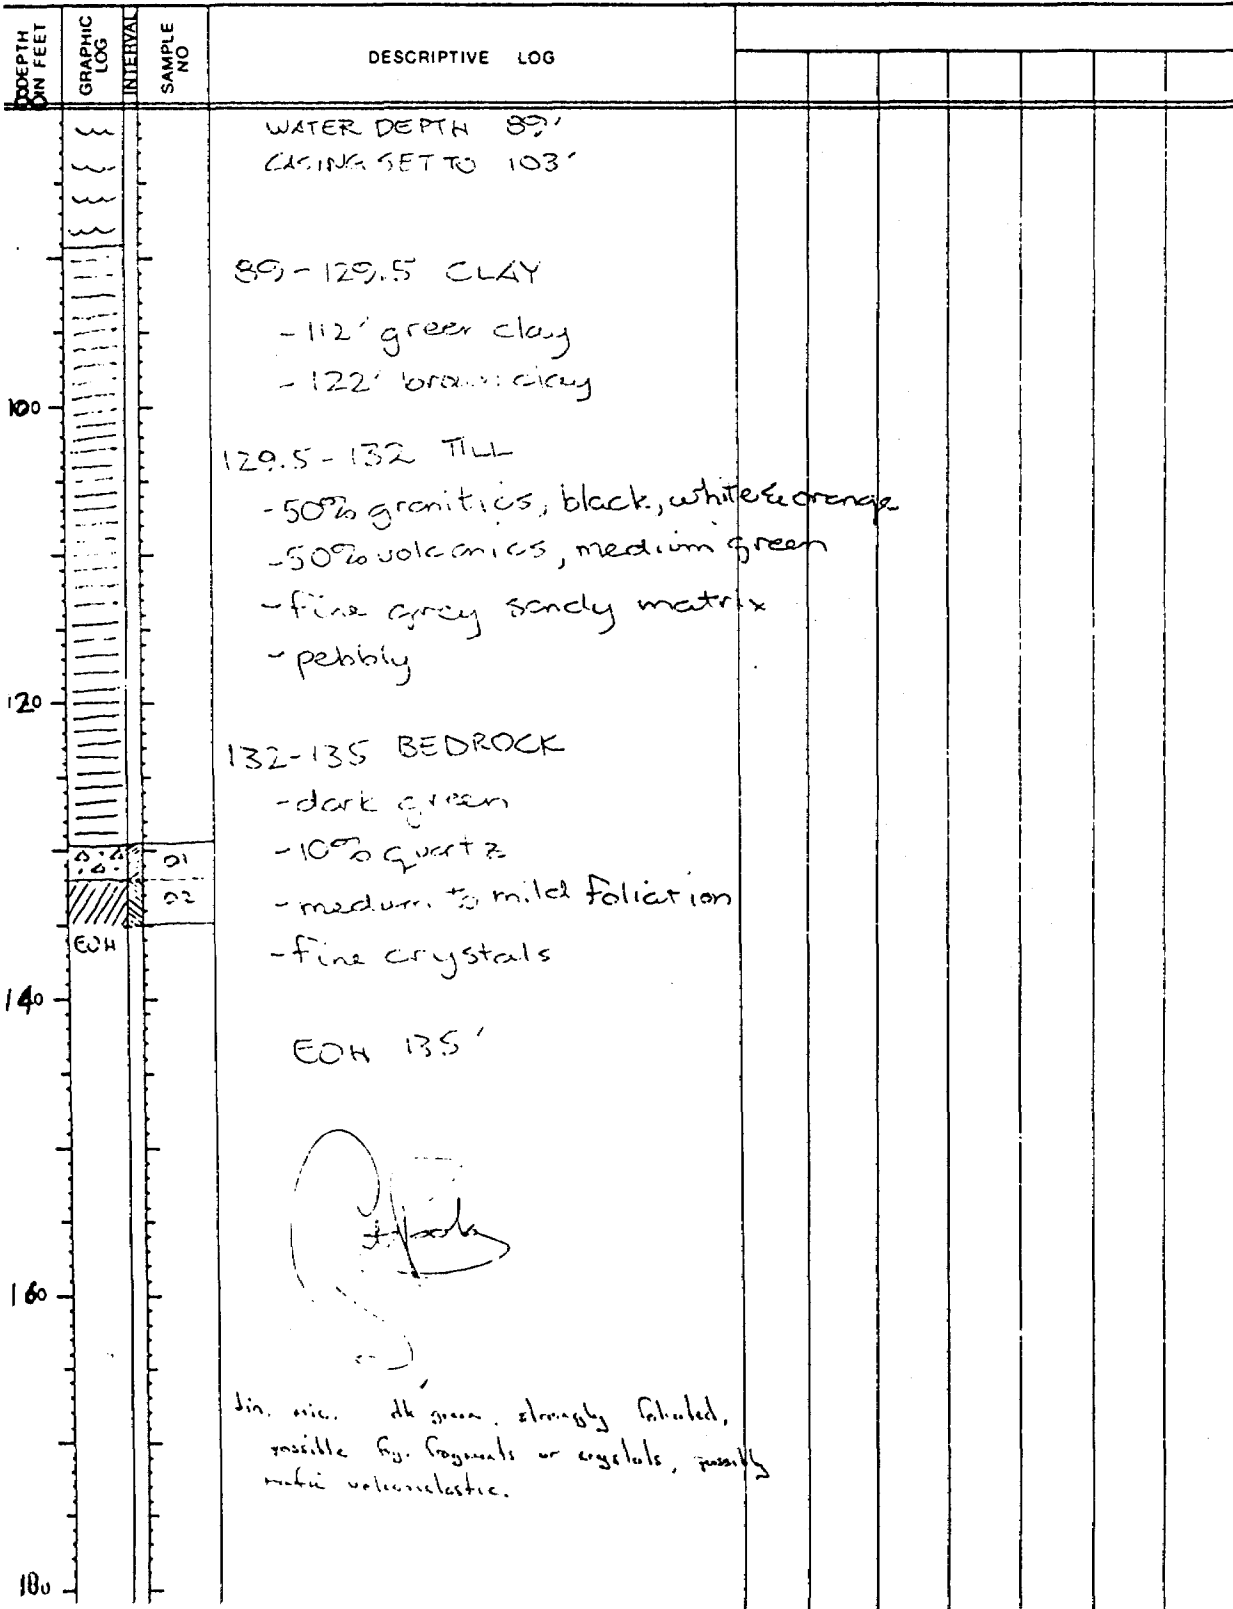 DEPTH IN FEET
GRAPHIC LOG
INTERVAL
SAMPLE NO
DESCRIPTIVE LOG
80
WATER DEPTH 89'
CASING SET TO 103'
89-129.5 CLAY
-112' green clay
-122' brown clay
100
129.5-132 TILL
-50% granitics, black, white & orange
-50% volcanics, medium green
-fine grey sandy matrix
-pebbly
120
132-135 BEDROCK
-dark green
-10% quartz
01
-medium to mild foliation
02
-fine crystals
EOH
140
EOH 135'
160
bin. mic. dk green, strongly foliated,
possible f.g. fragments or crystals, possibly
mafic volcaniclastic.
180